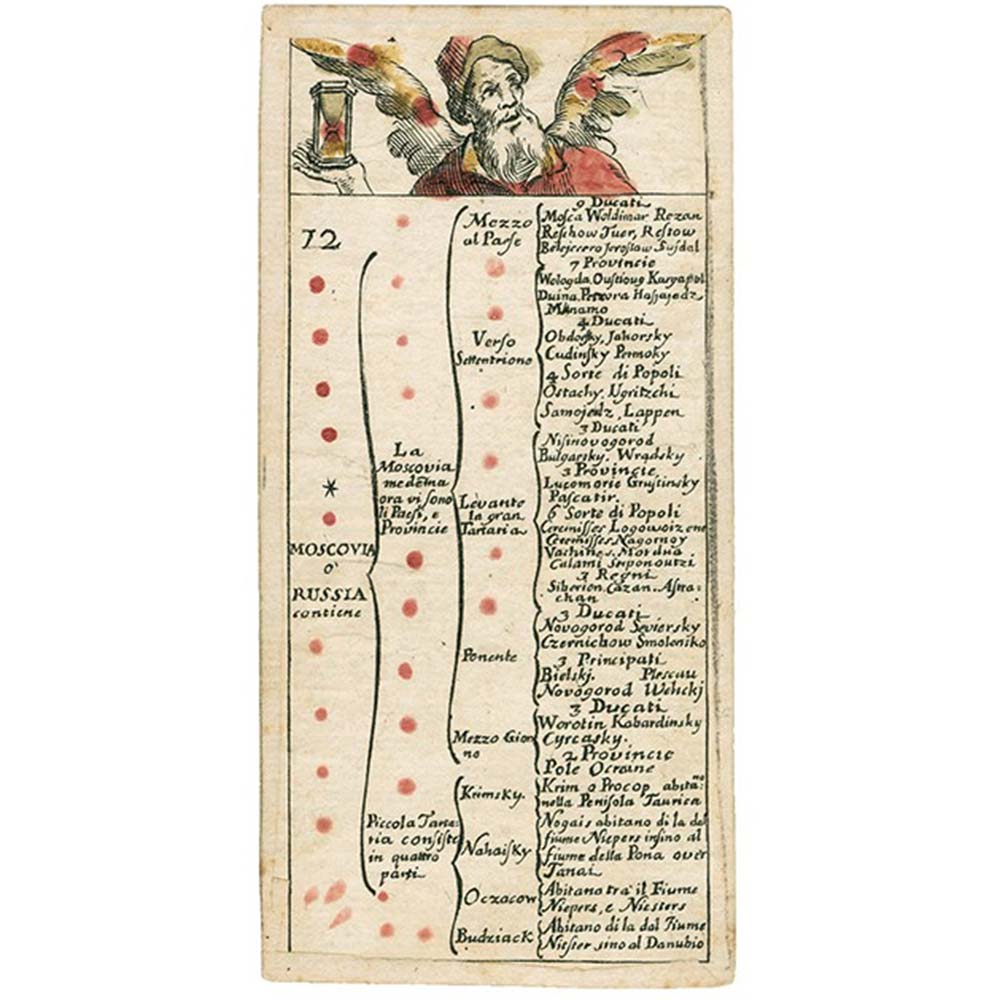 12
MOSCOVIA
ò
RUSSIA
contiene
La
Moscovia
medema
ora vi sono
li Paesi, e
Provincie
Mezzo
al Paese
9 Ducati
Mosca Woldimar Rezan
Reschow Tuer, Restow
Belejezero Jeroslaw Susdal
Verso
Settentrione
7 Provincie
Wologda. Oustioug Kargapol
Duina. Petzora
4 Ducati
Obdorsky, Jahorsky
Cudinsky Permoky
4 Sorte di Popoli
Ostachy, Ugritzchi
Samojedz, Lappen
Levante
la gran
Tartaria
3 Ducati
Nisinovogorod
Bulgarsky. Wrądsky
3 Provincie
Lucomorie Grustinsky
Pascatir.
6 Sorte di Popoli
Ceremisses Logowoizene
Ceremisses Nagornoy
Vachines. Mordua
Calami Serponoutzi
3 Regni
Siberien. Cazan. Astra:
chan
Ponente
3 Ducati
Novogorod Seviersky
Czernichow Smolensko
3 Principati
Bielskj. Plescau
Novogorod Welickj
Mezzo Gior
no
3 Ducati
Worotin Kabardinsky
Cyrcasky.
2 Provincie
Pole Ocraine
Piccola Tarta
ria consiste
in quattro
parti
Krimsky.
Krim o Procop abitano
nella Penisola Taurica
Nahaisky
Nogais abitano di la dal
fiume Niepers insino al
fiume della Pona over
Tanai
Oczacow
Abitano trà il Fiume
Niepers, e Niesters
Budziack
Abitano di la dal Fiume
Niester sino al Danubio